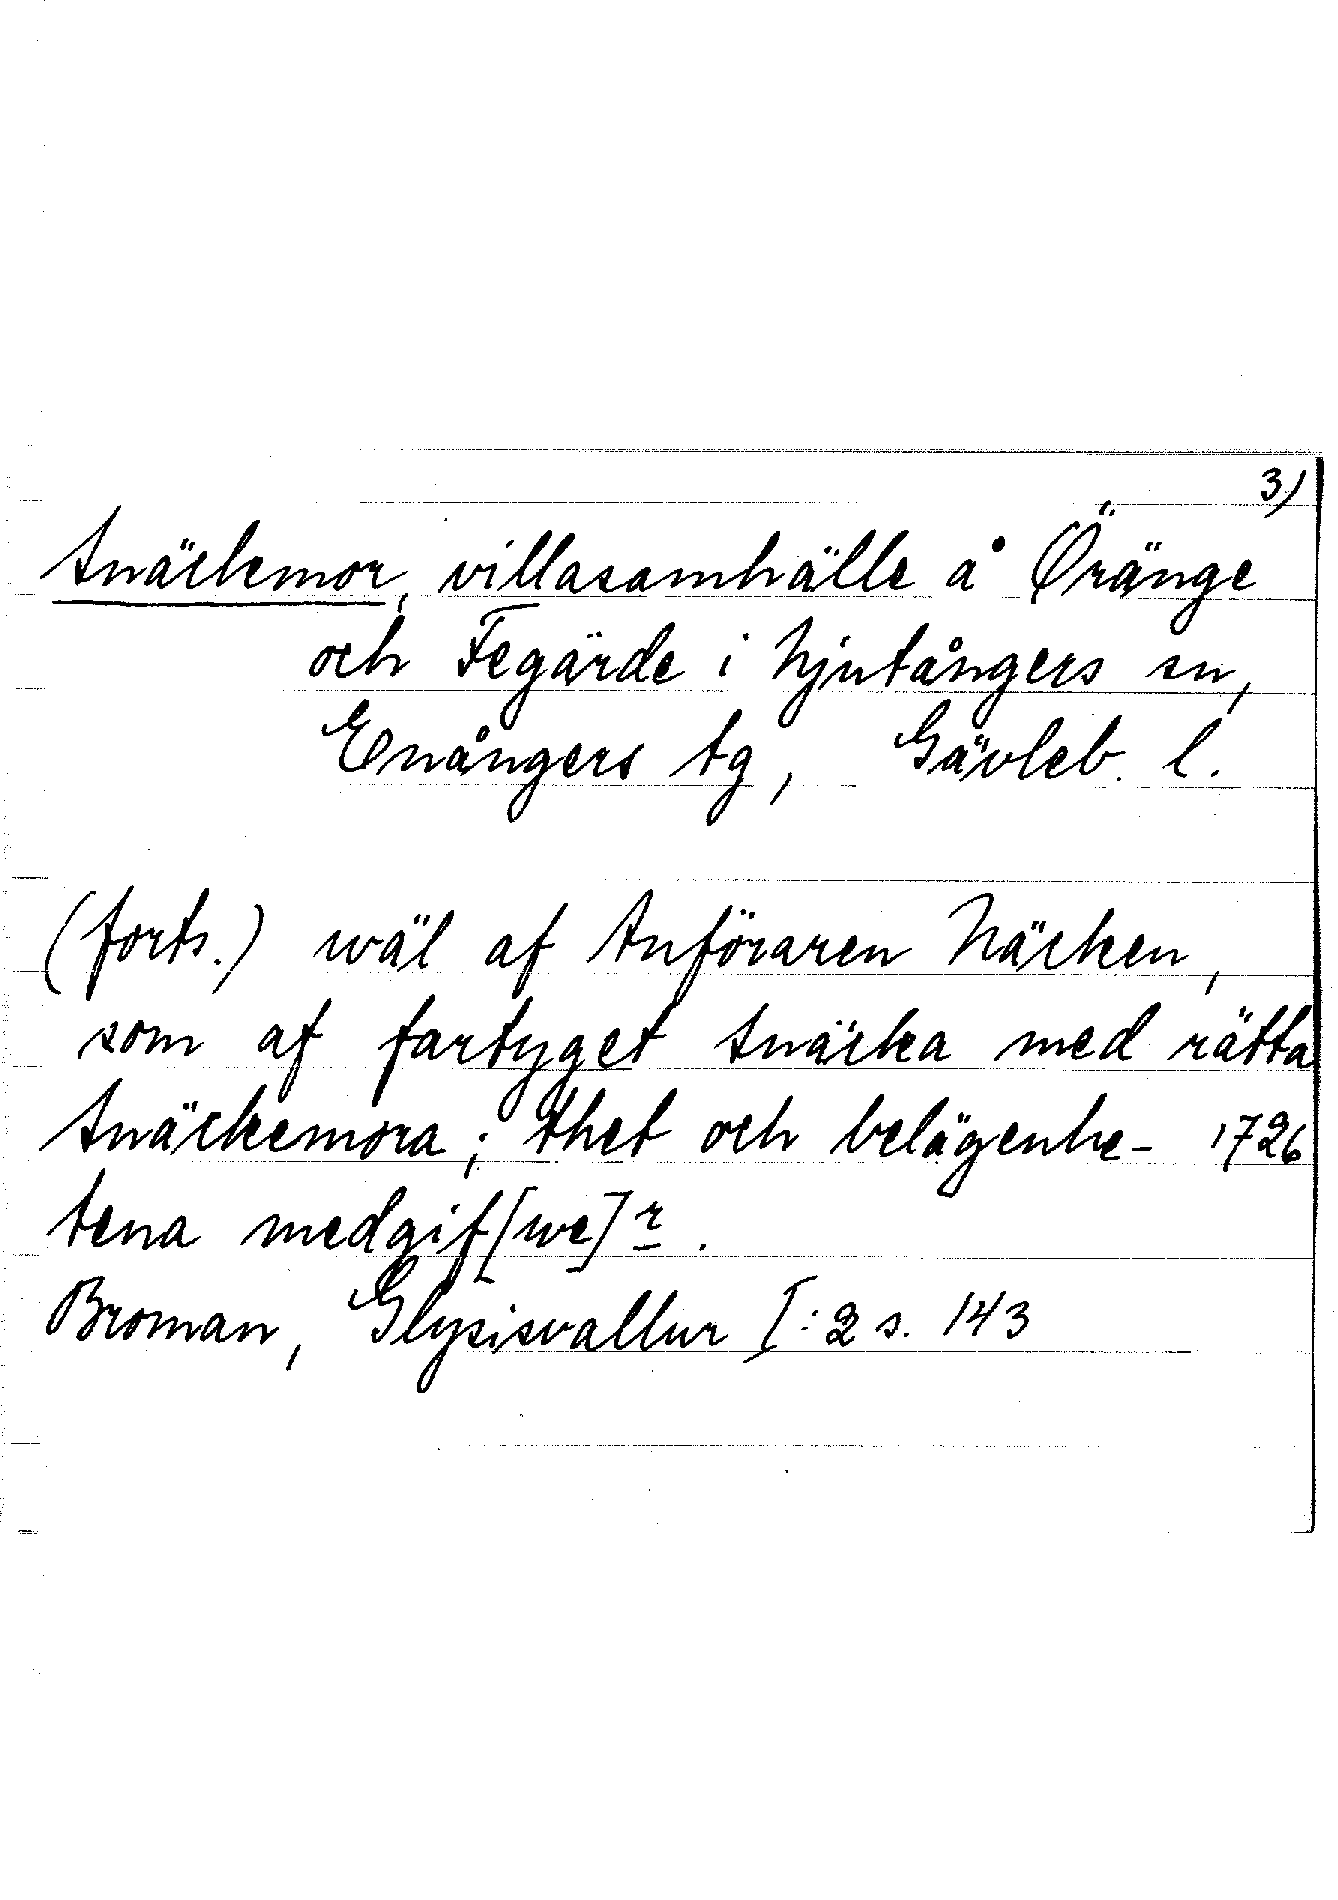 3)
Snäckemor, villasamhälle å Öränge
och Fegärde i Njutångers sn,
Enångers tg, Gävleb. l.
(forts.) wäl af Anföraren Näcken,
som af fartyget Snäcka med rätta
Snäckemora; thet och belägenhe- 1726
tena medgif[we]r.
Broman, Glysisvallur I:2 s. 143